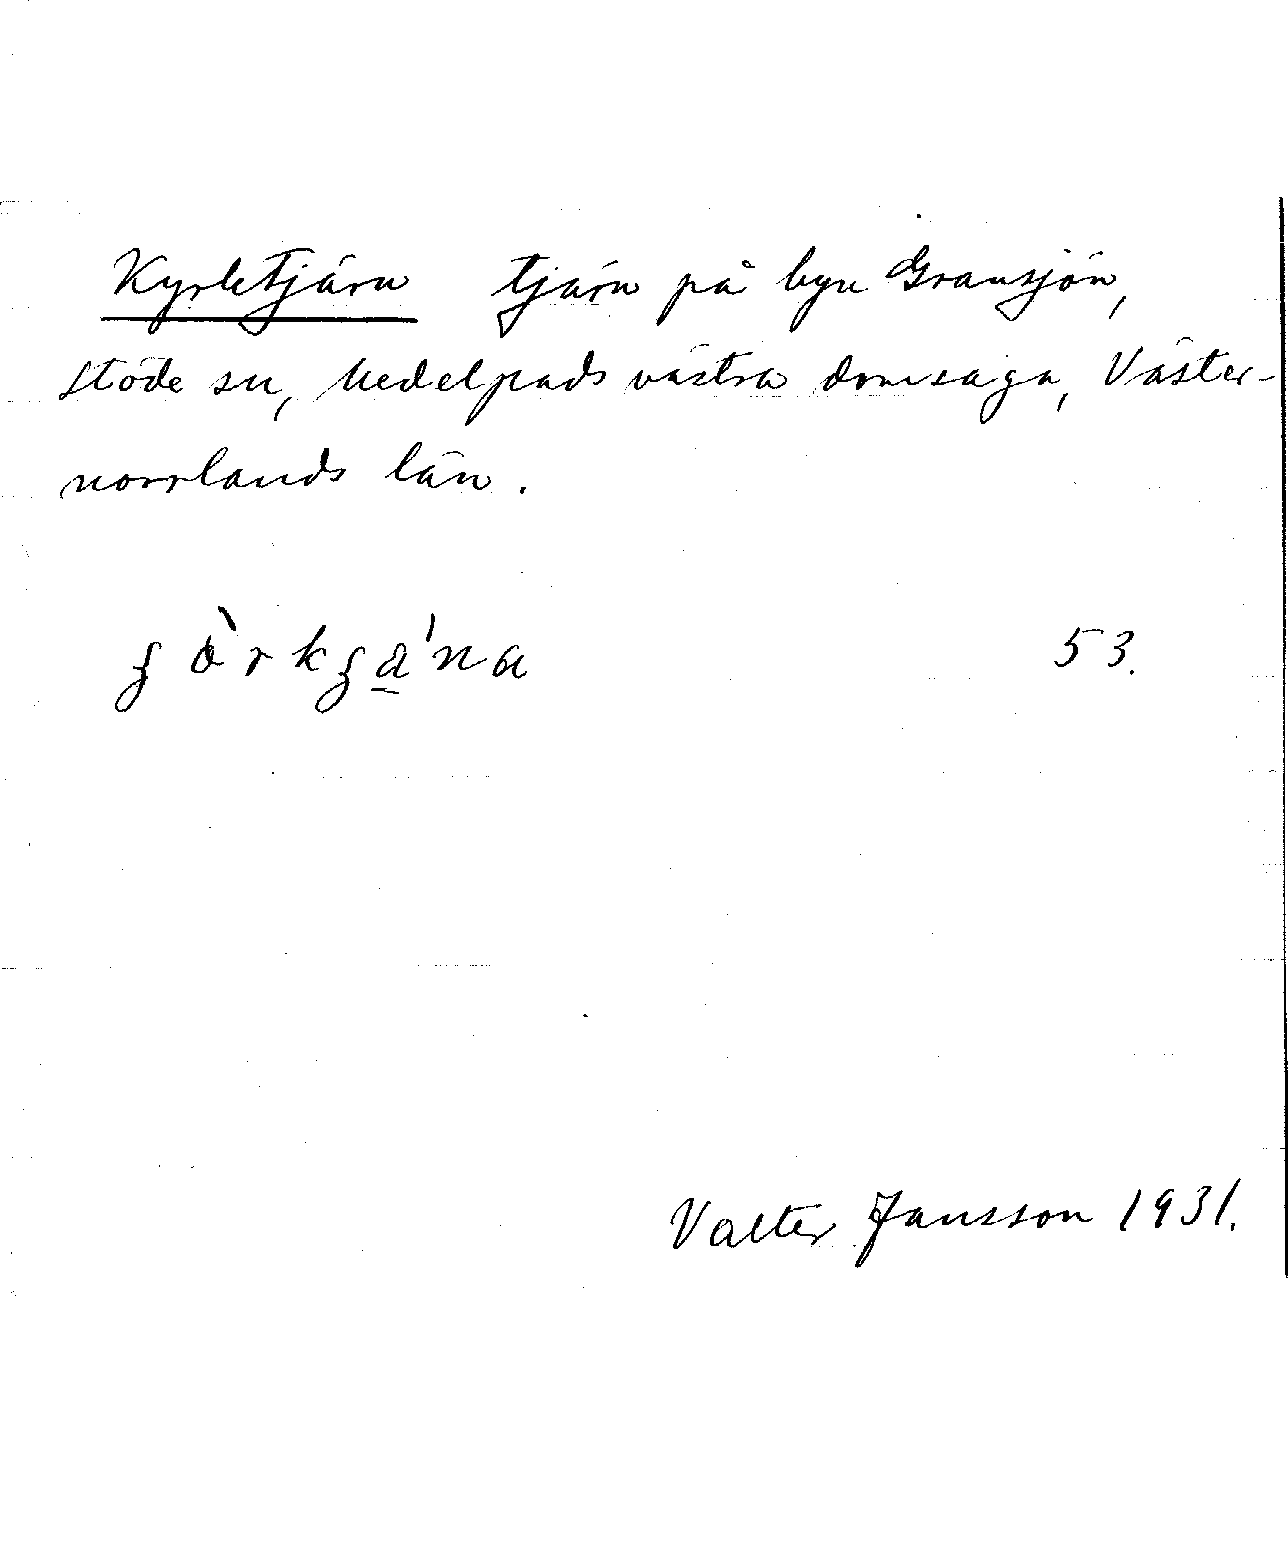 Kyrktjärn tjärn på byn Gransjön,
Stöde sn, Medelpads västra domsaga, Väster-
norrlands län.
53.
Valter Jansson 1931.